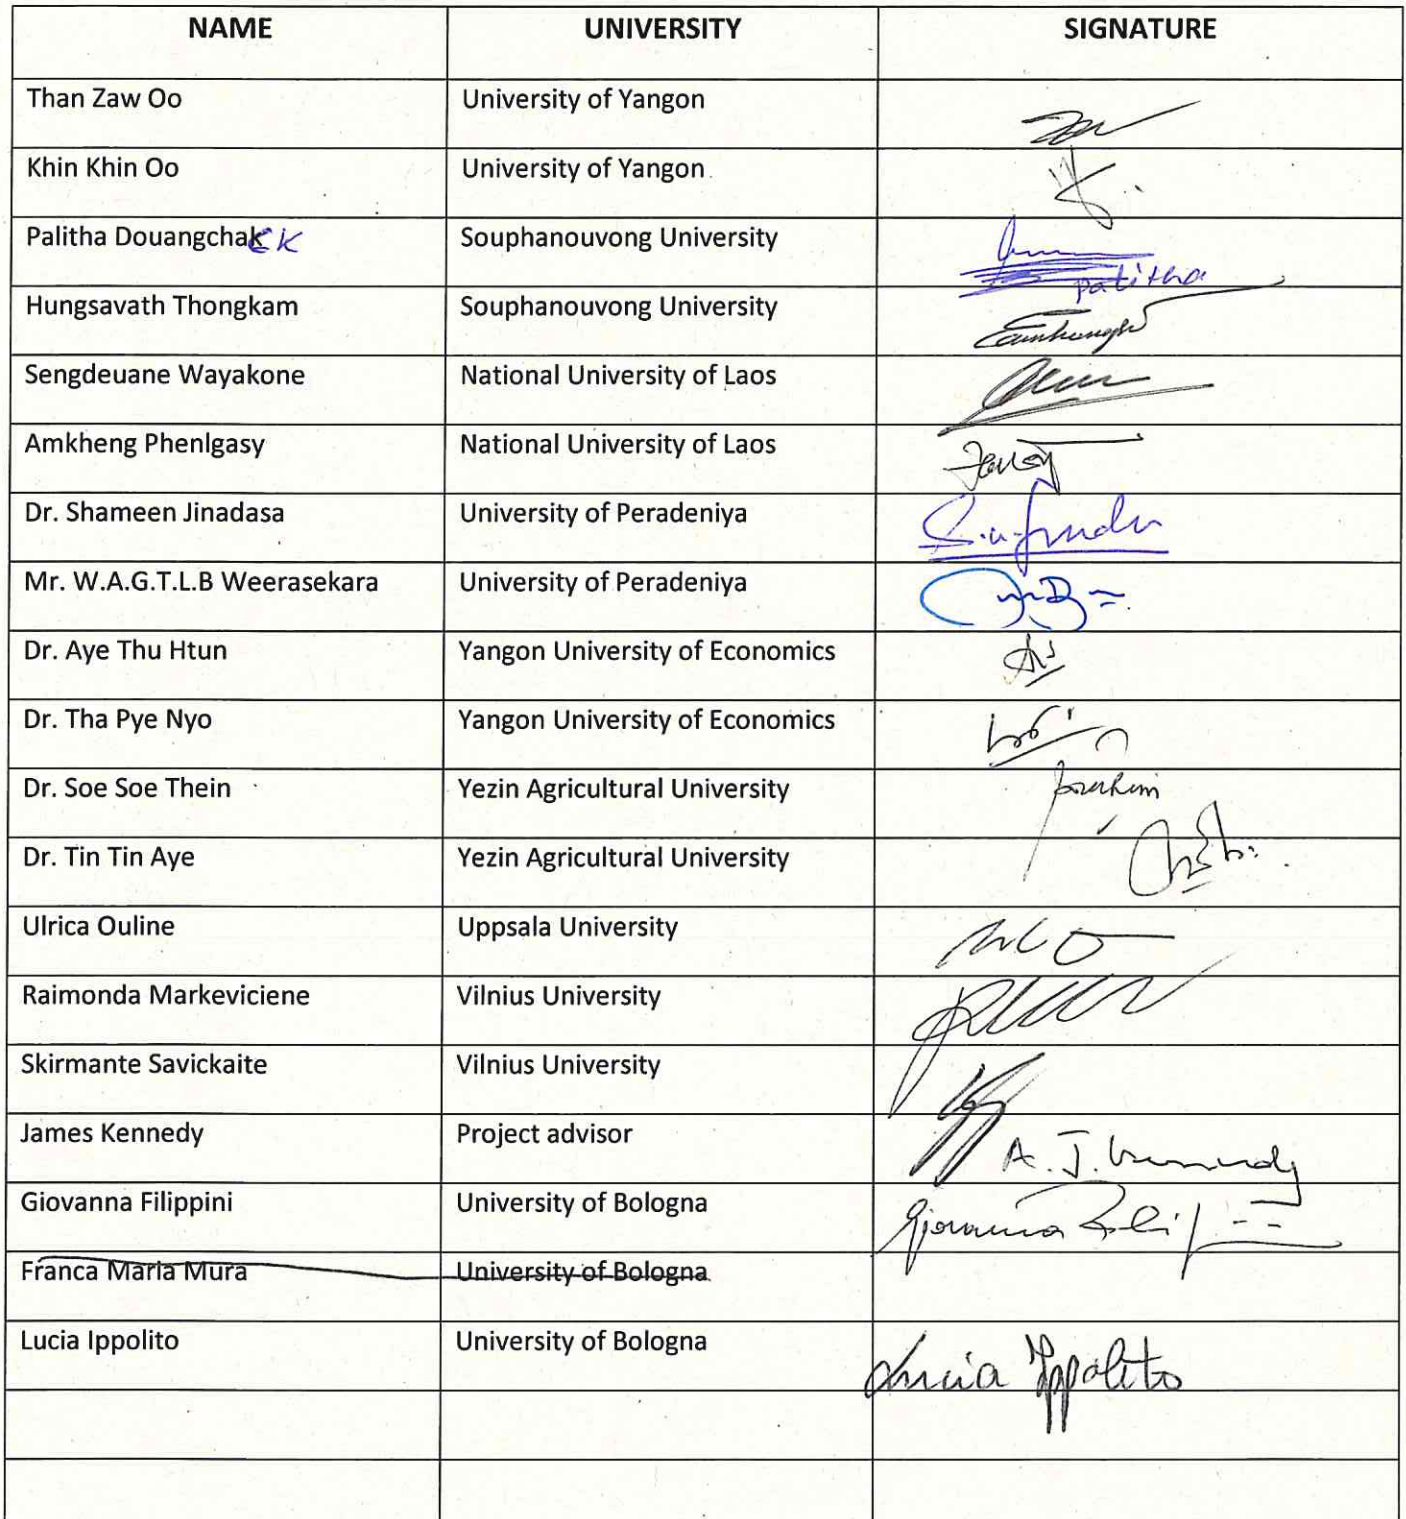 NAME UNIVERSITY SIGNATURE
Than Zaw Oo University of Yangon
Khin Khin Oo University of Yangon
Palitha Douangchak EK Souphanouvong University palitha
Hungsavath Thongkam Souphanouvong University
Sengdeuane Wayakone National University of Laos
Amkheng Phenlgasy National University of Laos
Dr. Shameen Jinadasa University of Peradeniya
Mr. W.A.G.T.L.B Weerasekara University of Peradeniya
Dr. Aye Thu Htun Yangon University of Economics
Dr. Tha Pye Nyo Yangon University of Economics
Dr. Soe Soe Thein Yezin Agricultural University
Dr. Tin Tin Aye Yezin Agricultural University
Ulrica Ouline Uppsala University
Raimonda Markeviciene Vilnius University
Skirmante Savickaite Vilnius University
James Kennedy Project advisor A. J. Kennedy
Giovanna Filippini University of Bologna Giovanna Filippini
Franca Maria Mura University of Bologna
Lucia Ippolito University of Bologna Lucia Ippolito